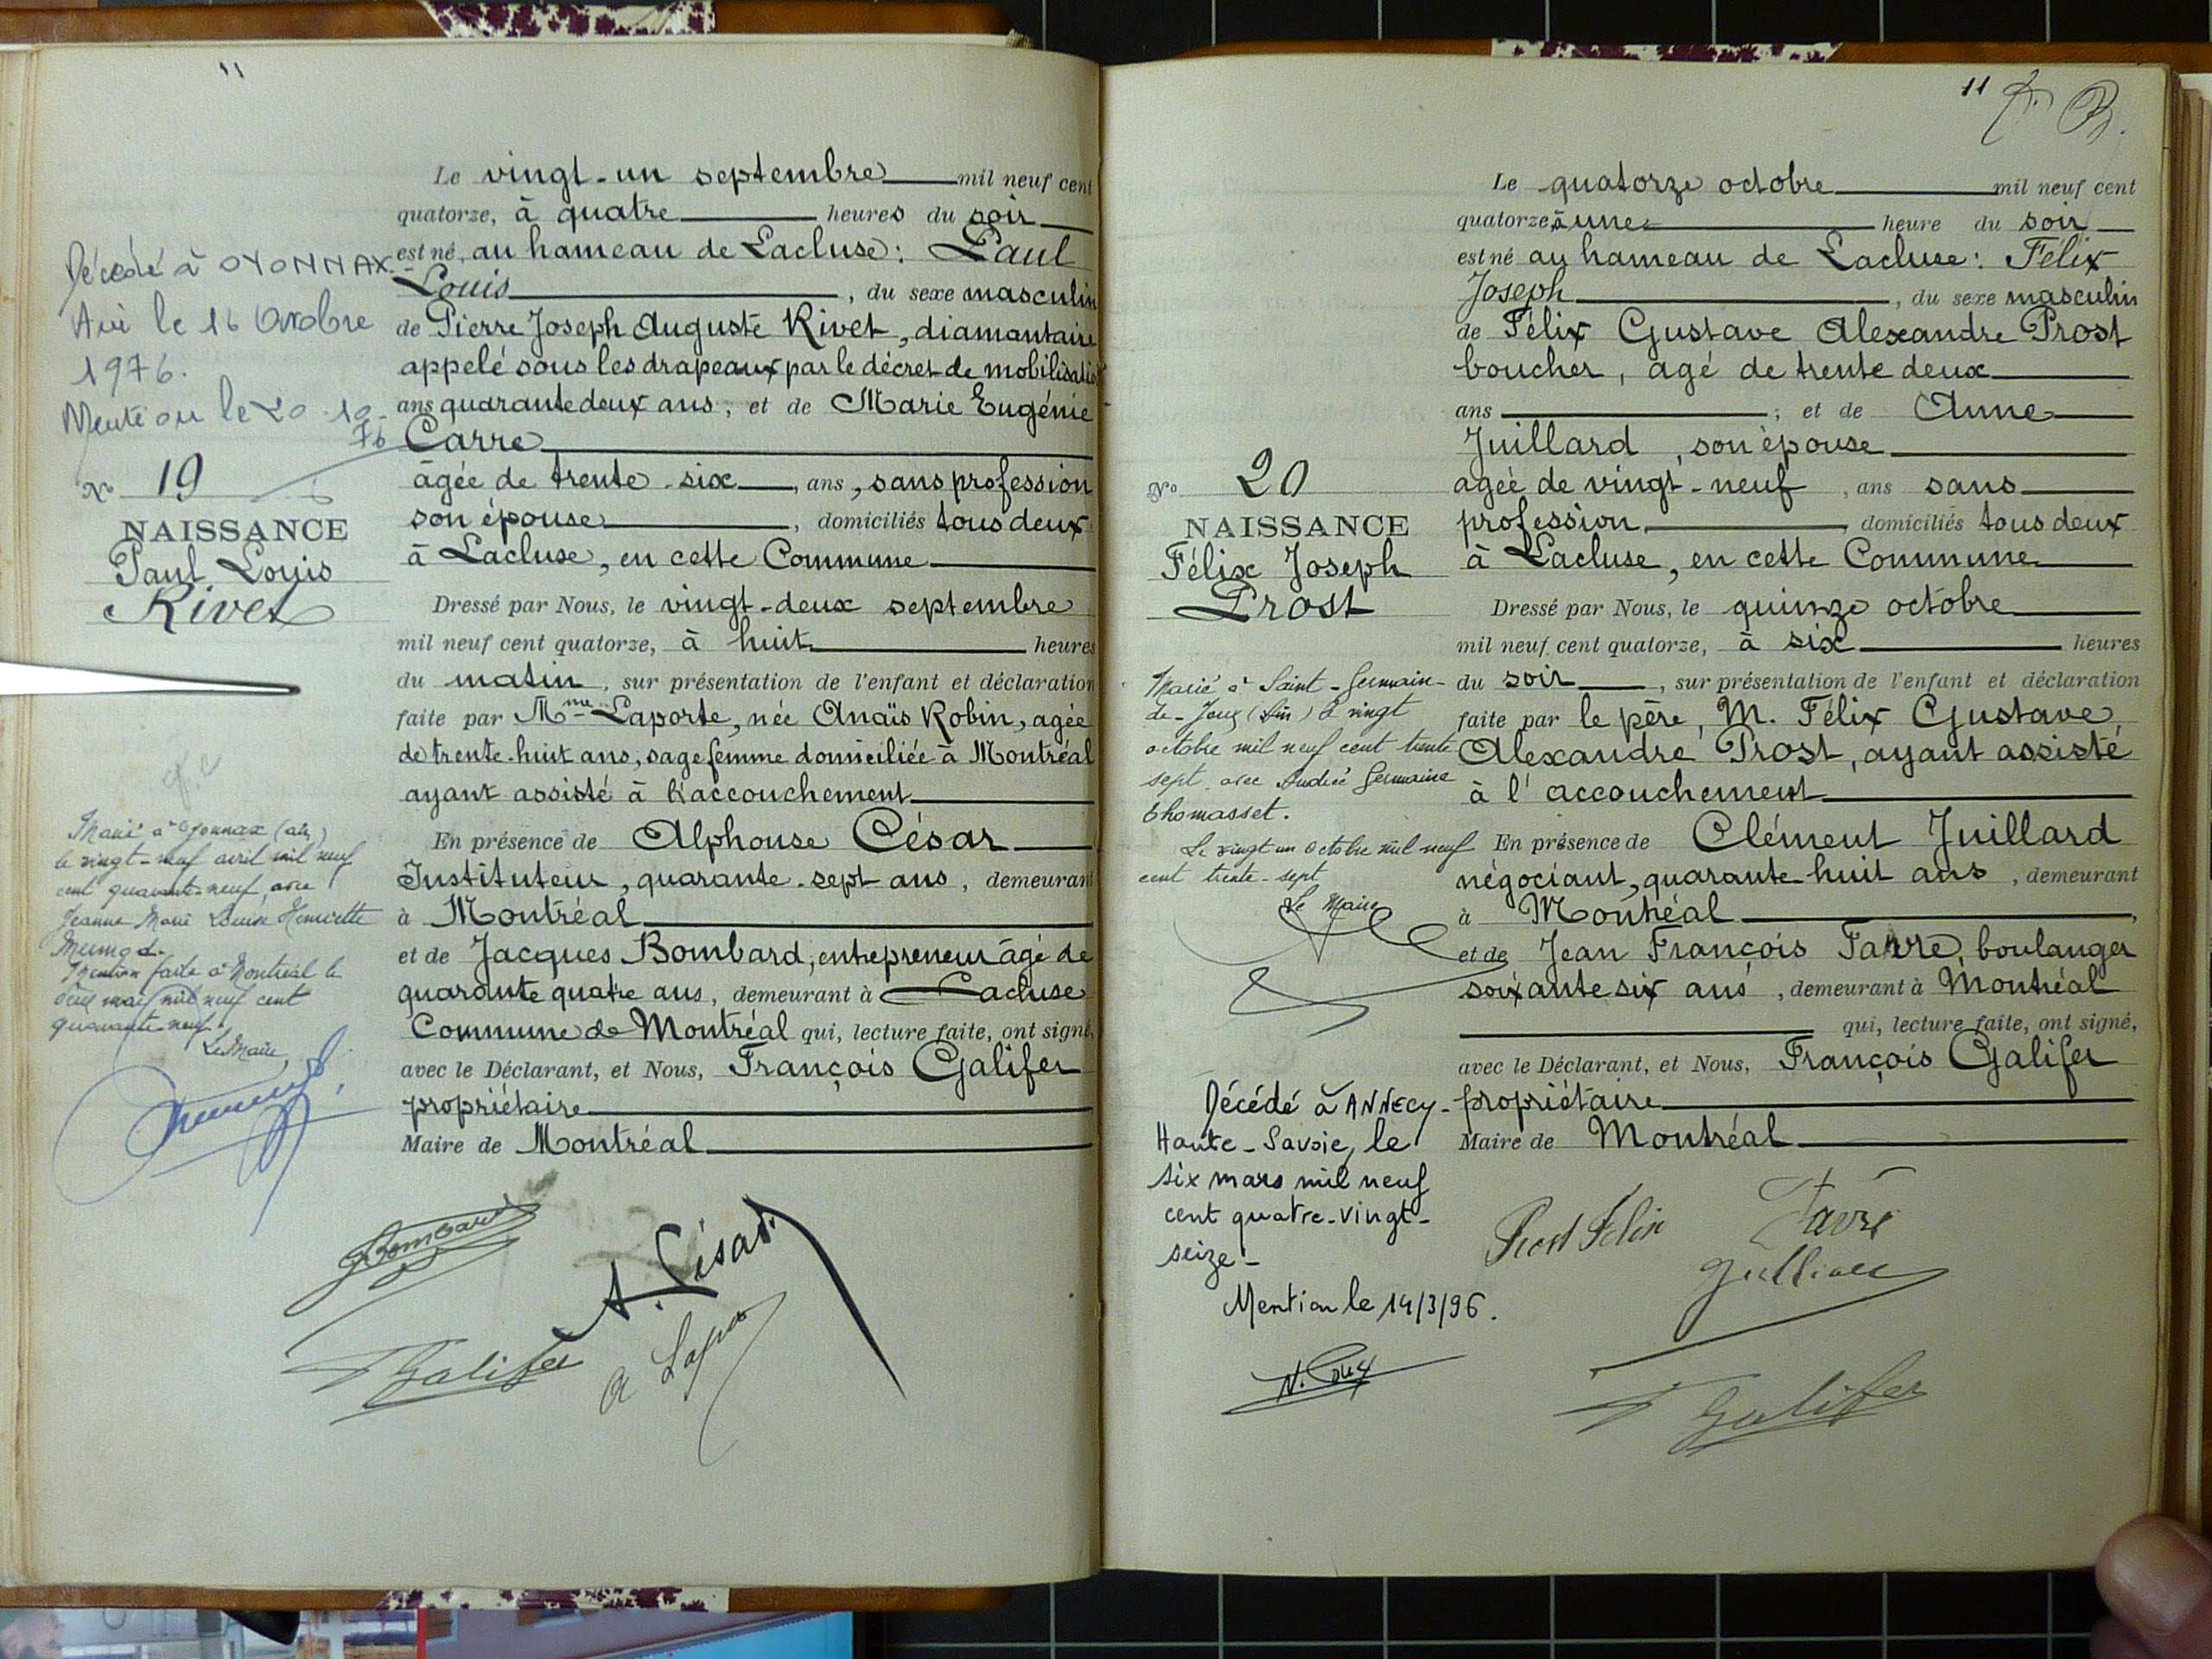 11
Décédé à OYONNAX
Ain le 16 Octobre
1976.
Mention le 20-10-
76
No 19
NAISSANCE
Paul Louis
Rivet
Marié à Oyonnax (ain)
le vingt-neuf avril mil neuf
cent quarante-neuf, avec
Jeanne Marie Louise Henriette
Mention faite à Montréal le
deux mai mil neuf cent
quarante-neuf.
Le Maire,
Le vingt-un septembre mil neuf cent
quatorze, à quatre heures du soir
est né, au hameau de Lacluse: Paul
Louis, du sexe masculin
de Pierre Joseph Auguste Rivet, diamantaire
appelé sous les drapeaux par le décret de mobilisation
ans quarante deux ans, et de Marie Eugénie
Carre
âgée de trente-six, ans, sans profession
son épouse, domiciliés tous deux
à Lacluse, en cette Commune
Dressé par Nous, le vingt-deux septembre
mil neuf cent quatorze, à huit heures
du matin, sur présentation de l'enfant et déclaration
faite par Mme Laporte, née Anaïs Robin, agée
de trente-huit ans, sage femme domiciliée à Montréal
ayant assisté à l'accouchement
En présence de Alphonse César
Instituteur, quarante-sept ans, demeurant
à Montréal
et de Jacques Bombard, entrepreneur âgé de
quarante quatre ans, demeurant à Lacluse
Commune de Montréal qui, lecture faite, ont signé,
avec le Déclarant, et Nous, François Galifer
propriétaire
Maire de Montréal
Bombard
A. César
Galifer
11
No 20
NAISSANCE
Félix Joseph
Prost
Marié à Saint-Germain-
de-Joux (Ain) le vingt
octobre mil neuf cent trente
sept, avec Andrée Germaine
Thomasset.
Le vingt un octobre mil neuf
cent trente-sept
Le Maire
Décédé à ANNECY-
Haute-Savoie, le
six mars mil neuf
cent quatre-vingt-
seize-
Mention le 14/3/96.
Le quatorze octobre mil neuf cent
quatorze à une heure du soir
est né au hameau de Lacluse: Félix
Joseph, du sexe masculin
de Félix Gustave Alexandre Prost
boucher, agé de trente deux
ans; et de Anne
Juillard, son épouse
agée de vingt-neuf, ans sans
profession, domiciliés tous deux
à Lacluse, en cette Commune
Dressé par Nous, le quinze octobre
mil neuf cent quatorze, à six heures
du soir, sur présentation de l'enfant et déclaration
faite par le père, M. Félix Gustave
Alexandre Prost, ayant assisté
à l'accouchement
En présence de Clément Juillard
négociant, quarante-huit ans, demeurant
à Montréal,
et de Jean François Favre, boulanger
soixante six ans, demeurant à Montréal
qui, lecture faite, ont signé,
avec le Déclarant, et Nous, François Galifer
propriétaire
Maire de Montréal
Prost Félix
Favre
Juillard
Galifer